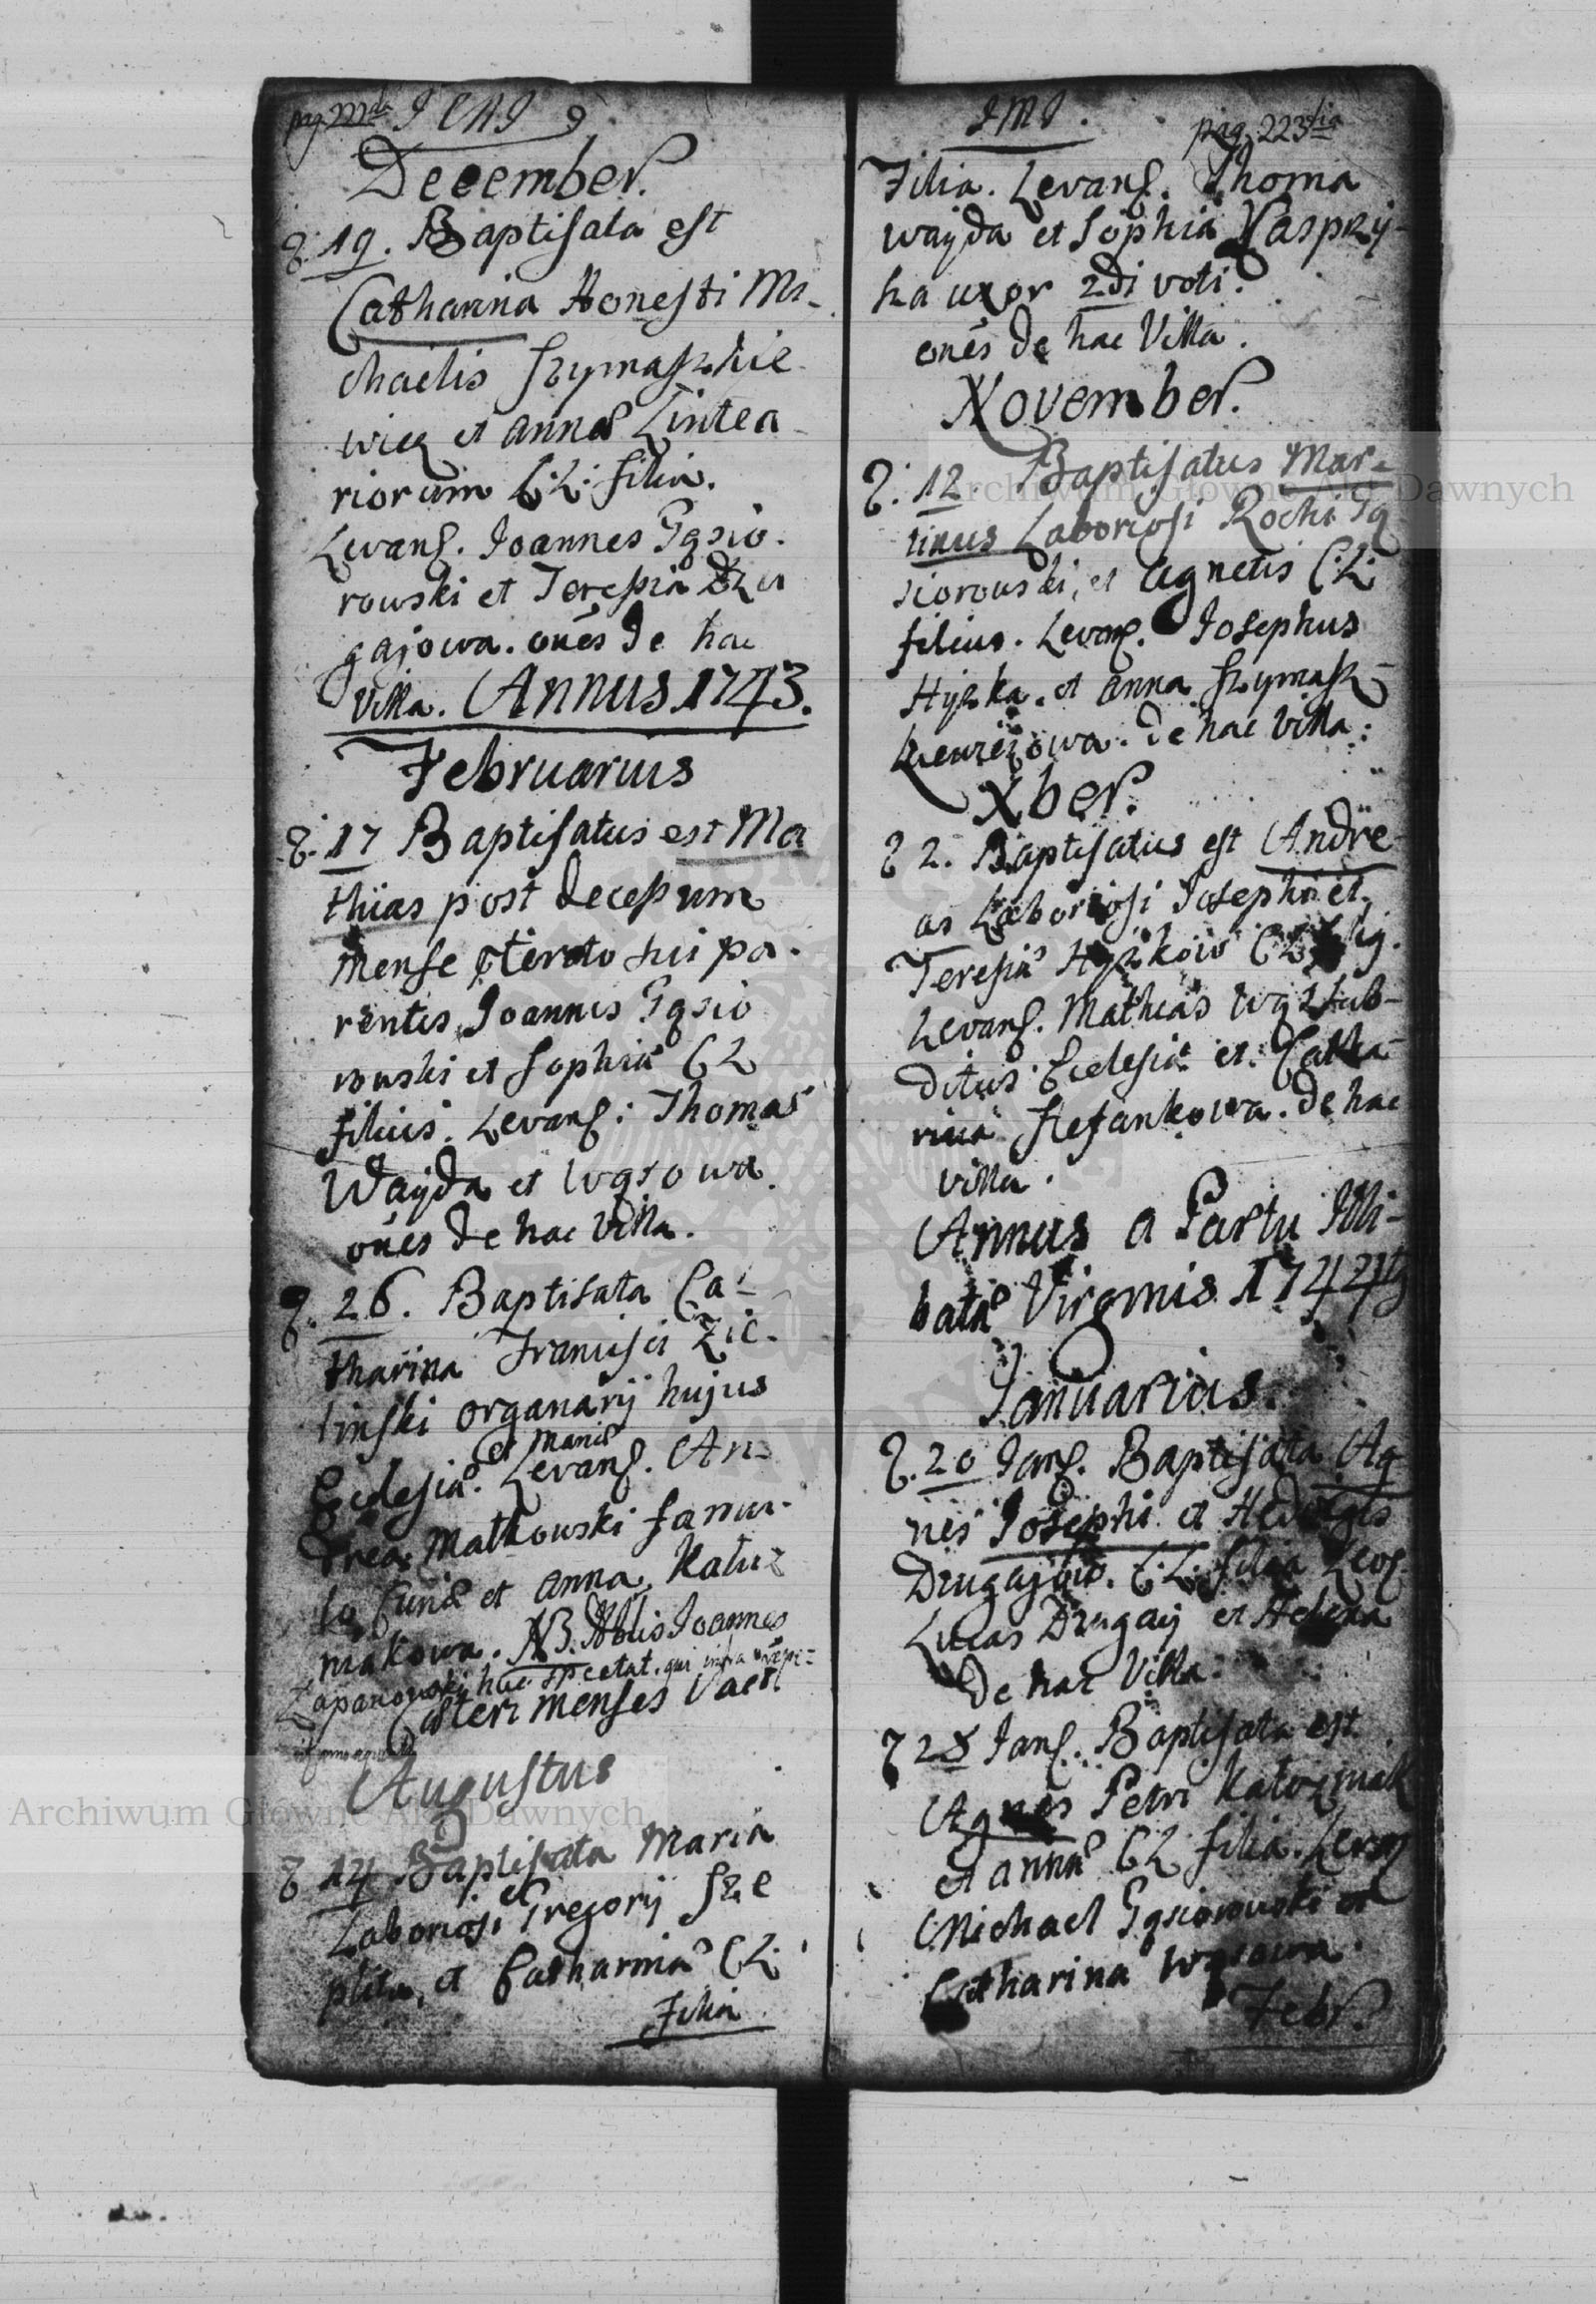 pag 222da
December.
D. 19. Baptisata est
Catharina Honesti Mi-
chaelis Szymaszkie
wicz et Annæ Lintea
riorum C: L: filia.
Levans. Joannes Gąsio.
rowski et Teressia Dru
gajowa. oñes de hac
Villa. Annus 1743.
Februarius
D. 17 Baptisatus est Ma
thias post decessum
mense sui pa.
rentis Joannis Gąsio
rowski et Sophiæ C L
filius. Levans: Thomas
Wayda et Wąsowa.
oñes de hac Villa.
D. 26. Baptisata Ca-
tharina Francisci Zie-
linski organarij hujus
et Mariæ
Ecclesiæ. Levans. An-
dreas Matkowski famu-
Curiæ et Anna Katuz
niakowa. NB. Joannes
huc spectat. qui infra
Cæteri menses vact.
Augustus
D 14 Baptisata Maria
Laboriosi Gregorij Sze
et Catharinæ C L.
Filia
JMJ.
pag. 223tia
Filia. Levans. Thoma
Wayda et Sophia Kasprzy-
ka uxor 2di voti.
oñes de hac Villa.
November.
D. 12 Baptisatus Mar-
tinus Laboriosi Rochi Gą
siorowski, et Agnetis C: L:
filius. Levans. Josephus
Hyzka. et Anna Szymasz-
kiewiczowa. de hac Villa.
Xber.
D 2. Baptisatus est Andre-
as Laboriosi Josephi et
Teresiæ C L
Levans. Mathias Wąs sub-
ditus Ecclesiæ et Catha-
rina Stefankowa. de hac
villa.
Annus a Partu Illi-
batæ Virginis 1744tg
Januarius.
D. 20 Jans. Baptisata Ag
nes Josephi et Hedvigis
C. L. filia
Lucas Drugay et Helena
de hac Villa.
D 28 Jans. Baptisata est
Agnes Petri Katuzniak
et Annæ C L filia. Levans
Michael Gąsiorowski et
Catharina Wąsowa.
Febr.
Archiwum Główne Akt Dawnych
Archiwum Główne Akt Dawnych